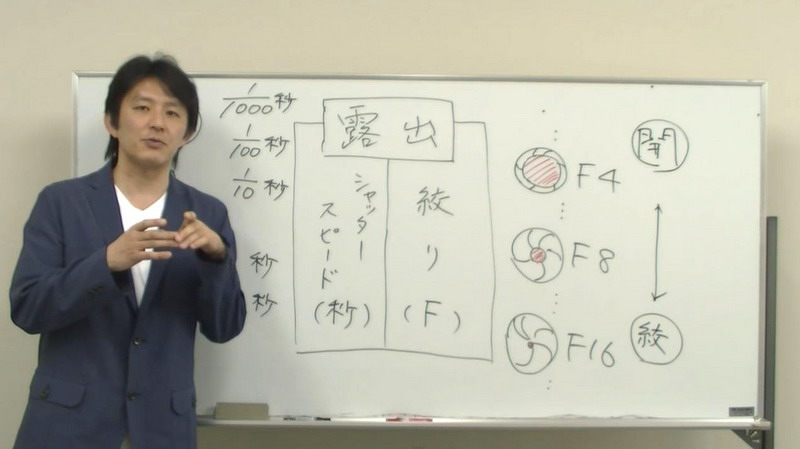 1/1000秒
1/100秒
1/10秒
秒
秒
露出
シャッター
スピード
(秒)
絞り
(F)
F4
F8
F16
開
絞